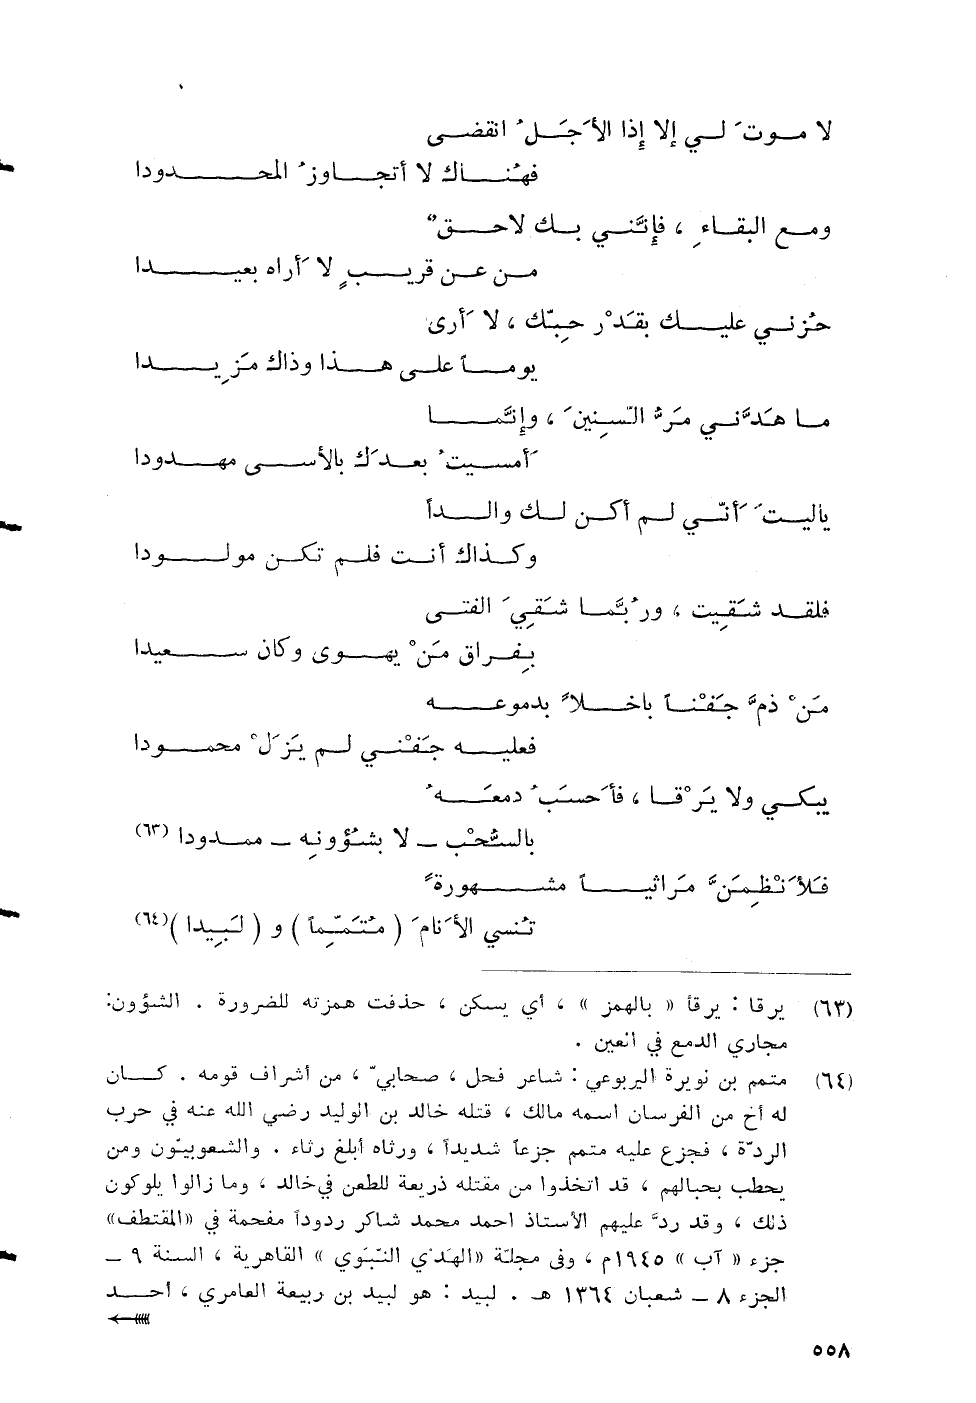 لا موتَ لي إلا إذا الأَجَلُ انقضى
فهُناك لا أتجاوزُ المحدودا
ومع البقاءِ ، فإِنَّني بك لاحقٌ
من عن قريبٍ لا أَراه بعيدا
حُزني عليك بقَدْر حبِّك ، لا أَرى
يوماً على هذا وذاك مَزِيدا
ما هَدَّني مَرُّ السِّنِينَ ، وإِنَّما
أَمسيتُ بعدَك بالأسى مهدودا
ياليتَ أَنّي لم أكن لك والداً
وكذاك أنت فلم تكن مولودا
فلقد شَقِيت ، ورُبَّما شَقِيَ الفتى
بِفراق مَنْ يهوى وكان سعيدا
مَنْ ذمَّ جَفْناً باخلاً بدموعه
فعليه جَفْني لم يَزَلْ محمودا
يبكي ولا يَرْقا ، فأَحسَبُ دمعَهُ
بالسُّحْب – لا بشُؤونِه – ممدودا (٦٣)
فَلأَنْظِمَنَّ مَراثياً مشهورةً
تُنسي الأَنامَ ( مُتَمِّماً ) و ( لَبِيدا )(٦٤)
(٦٣) يرقا : يرقأ « بالهمز » ، أي يسكن ، حذفت همزته للضرورة . الشؤون:
مجاري الدمع في العين .
(٦٤) متمم بن نويرة اليربوعي : شاعر فحل ، صحابيّ ، من أشراف قومه . كان
له أخ من الفرسان اسمه مالك ، قتله خالد بن الوليد رضي الله عنه في حرب
الردّة ، فجزع عليه متمم جزعاً شديداً ، ورثاه أبلغ رثاء . والشعوبيّون ومن
يحطب بحبالهم ، قد اتخذوا من مقتله ذريعة للطعن في خالد ، وما زالوا يلوكون
ذلك ، وقد ردَّ عليهم الأستاذ احمد محمد شاكر ردوداً مفحمة في «المقتطف»
جزء « آب » ١٩٤٥م ، وفى مجلة «الهَدْي النّبَوي » القاهرية ، السنة ٩ –
الجزء ٨ – شعبان ١٣٦٤ هـ . لبيد : هو لبيد بن ربيعة العامري ، أحد
٥٥٨